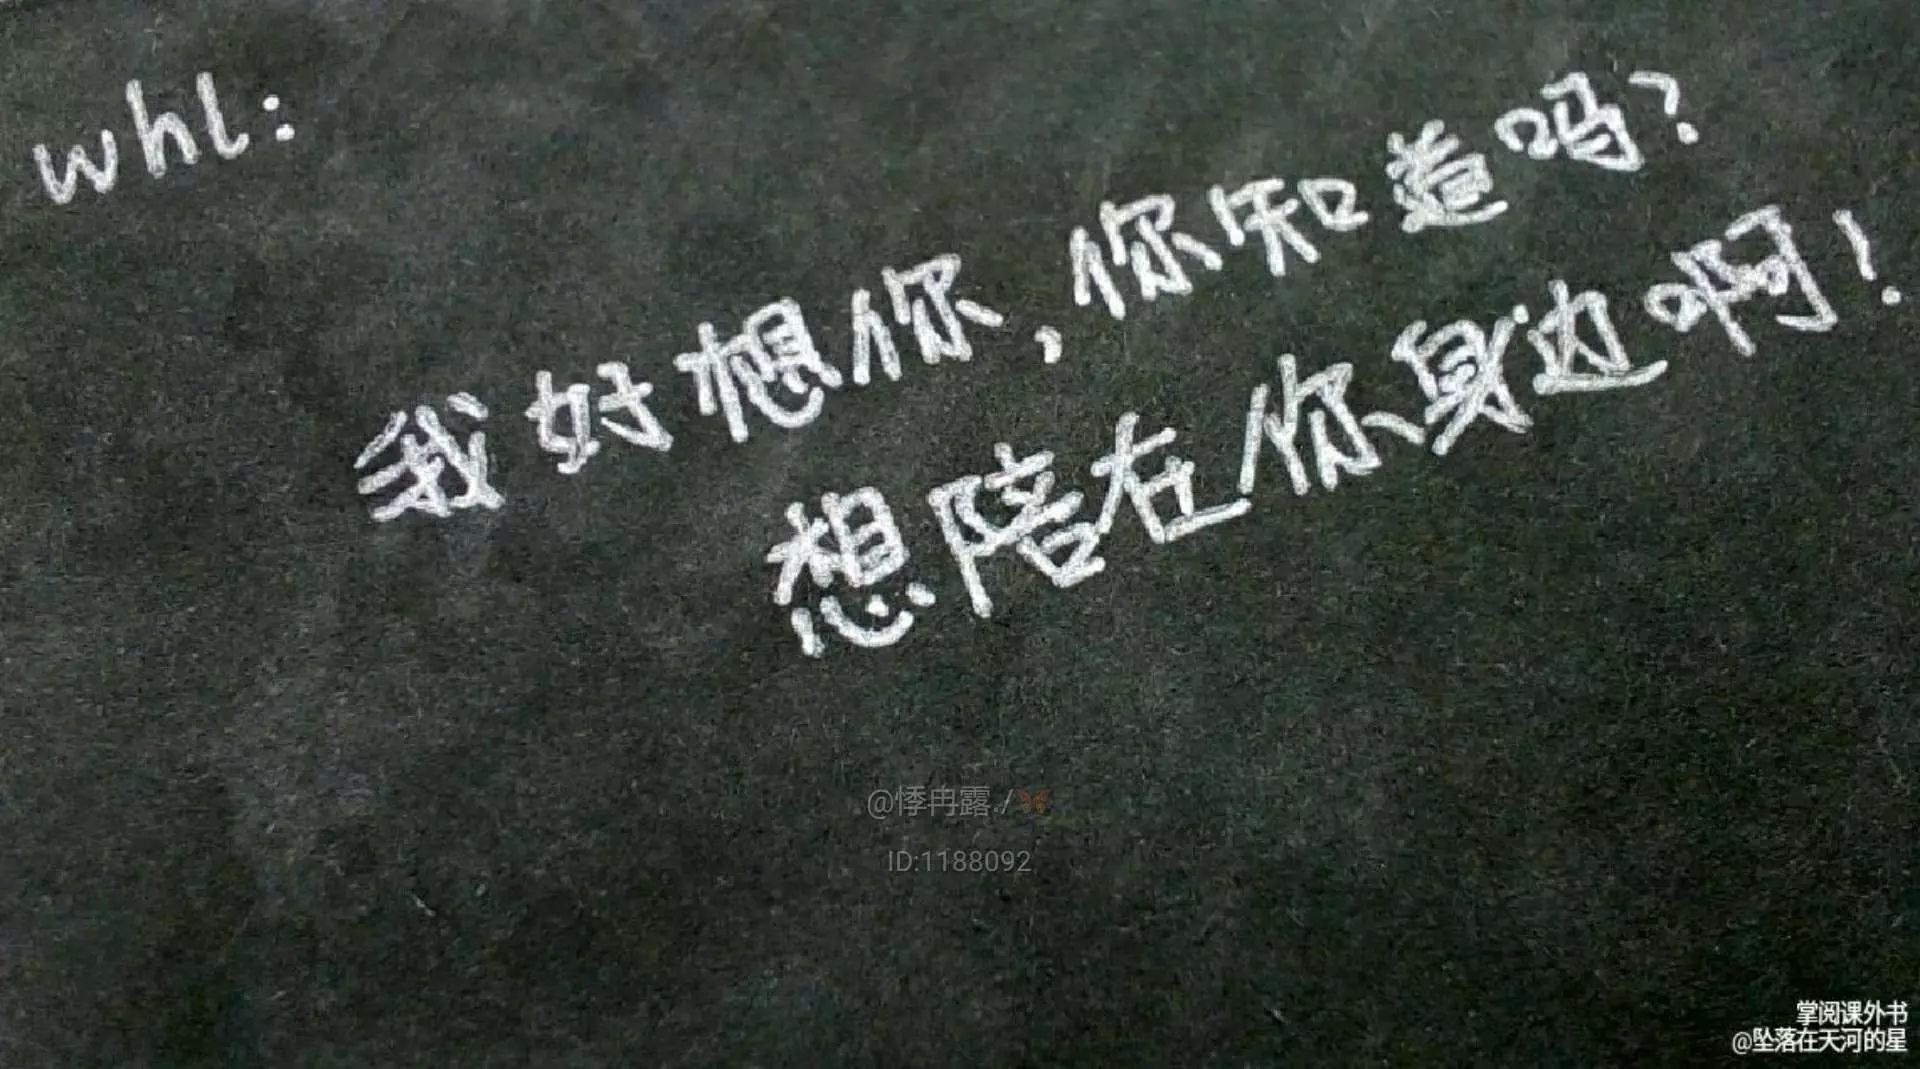 whl:
我好想你,你知道吗?
想陪在你身边啊!
@悸冉露./🦋
ID:1188092
掌阅课外书
@坠落在天河的星